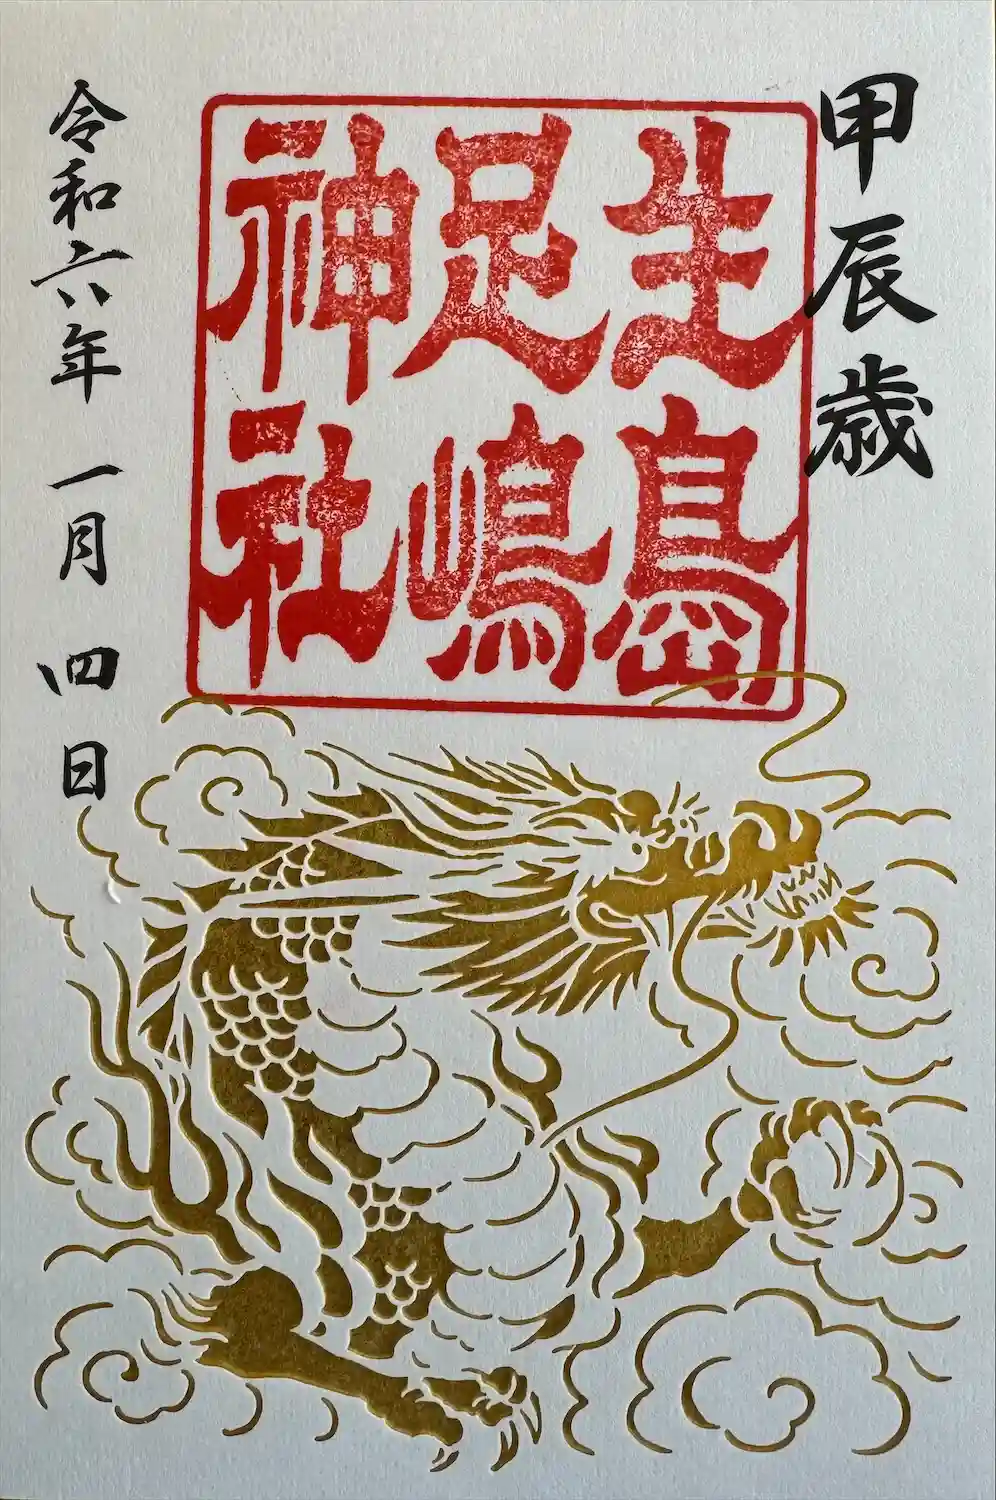 甲辰歳
生島
足嶋
神社
令和六年一月四日